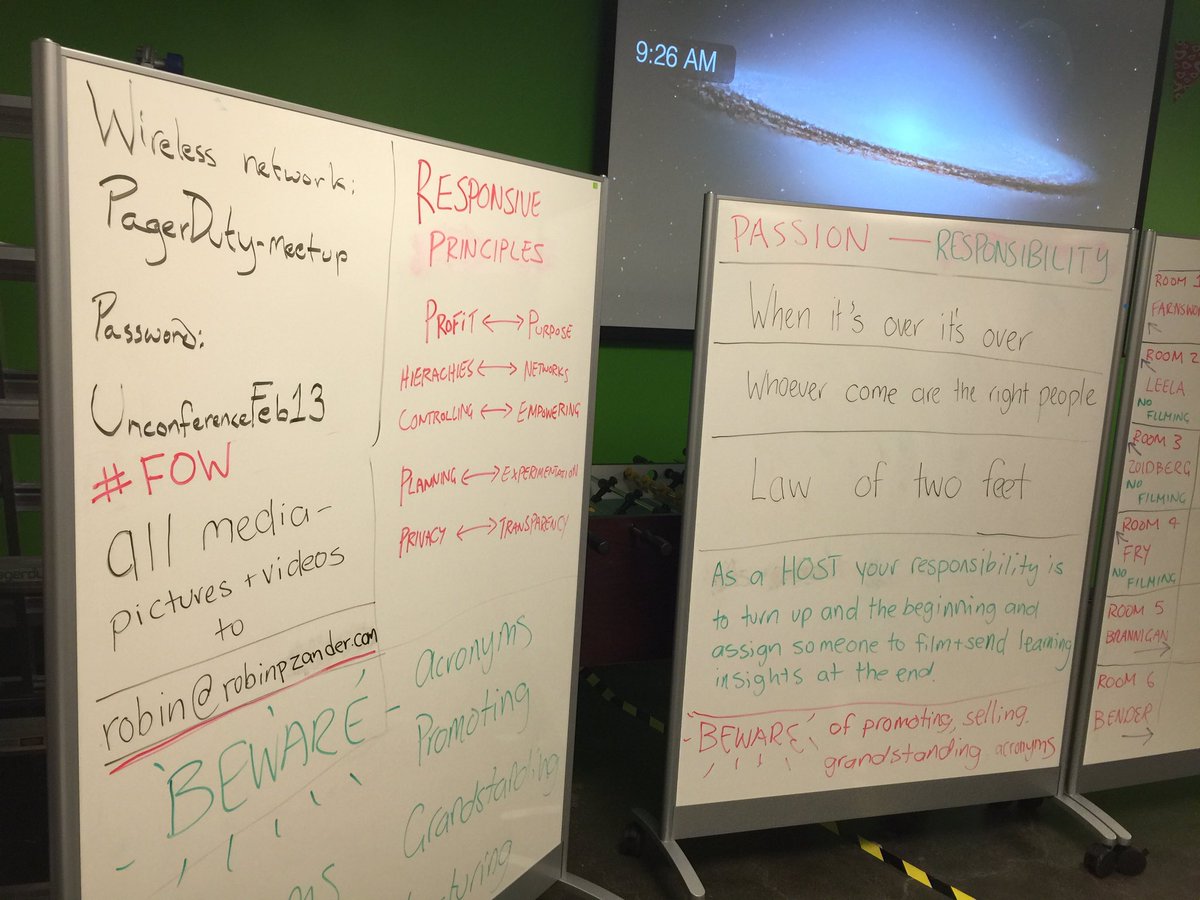 9:26 AM
Wireless network:
PagerDuty-meetup
Password:
UnconferenceFeb13
#FOW
all media-
pictures + videos
to
robin@robinpzander.com
RESPONSIVE
PRINCIPLES
PROFIT ↔ PURPOSE
HIERACHIES ↔ NETWORKS
CONTROLLING ↔ EMPOWERING
PLANNING ↔ EXPERIMENTATION
PRIVACY ↔ TRANSPARENCY
BEWARE - acronyms
Promoting
Grandstanding
PASSION — RESPONSIBILITY
When it's over it's over
Whoever come are the right people
Law of two feet
As a HOST your responsibility is
to turn up and the beginning and
assign someone to film + send learning
insights at the end.
BEWARE of promoting, selling.
grandstanding acronyms
ROOM 1
ROOM 2
LEELA
NO
FILMING
ROOM 3
ZOIDBERG
NO
FILMING
ROOM 4
FRY
NO
FILMING
ROOM 5
BRANNIGAN
ROOM 6
BENDER